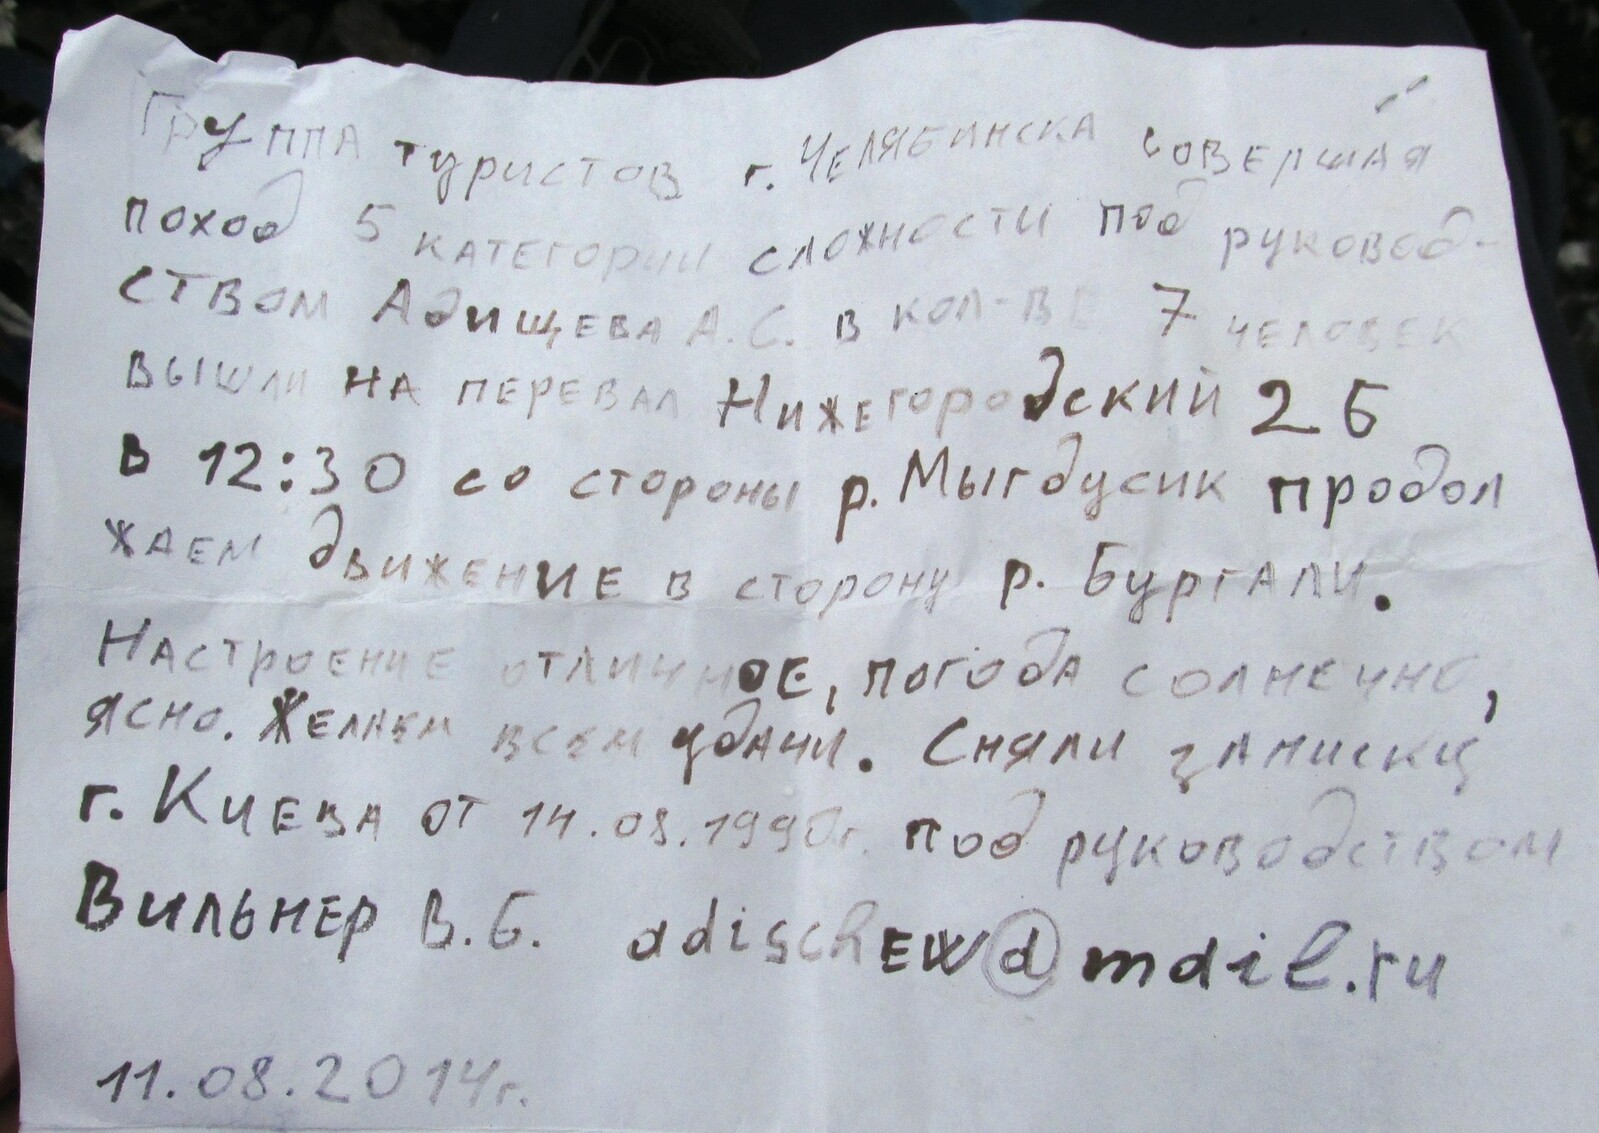 Группа туристов г. Челябинска совершая
поход 5 категории сложности под руковод-
ством Адищева А.С. в кол-ве 7 человек
вышли на перевал Нижегородский 2Б
в 12:30 со стороны р. Мыгдусик продол
жаем движение в сторону р. Бургали.
Настроение отличное, погода солнечно,
ясно. Желаем всем удачи. Сняли записку
г. Киева от 14.08.1990г. под руководством
Вильнер В.Б. adischew@mail.ru
11.08.2014г.